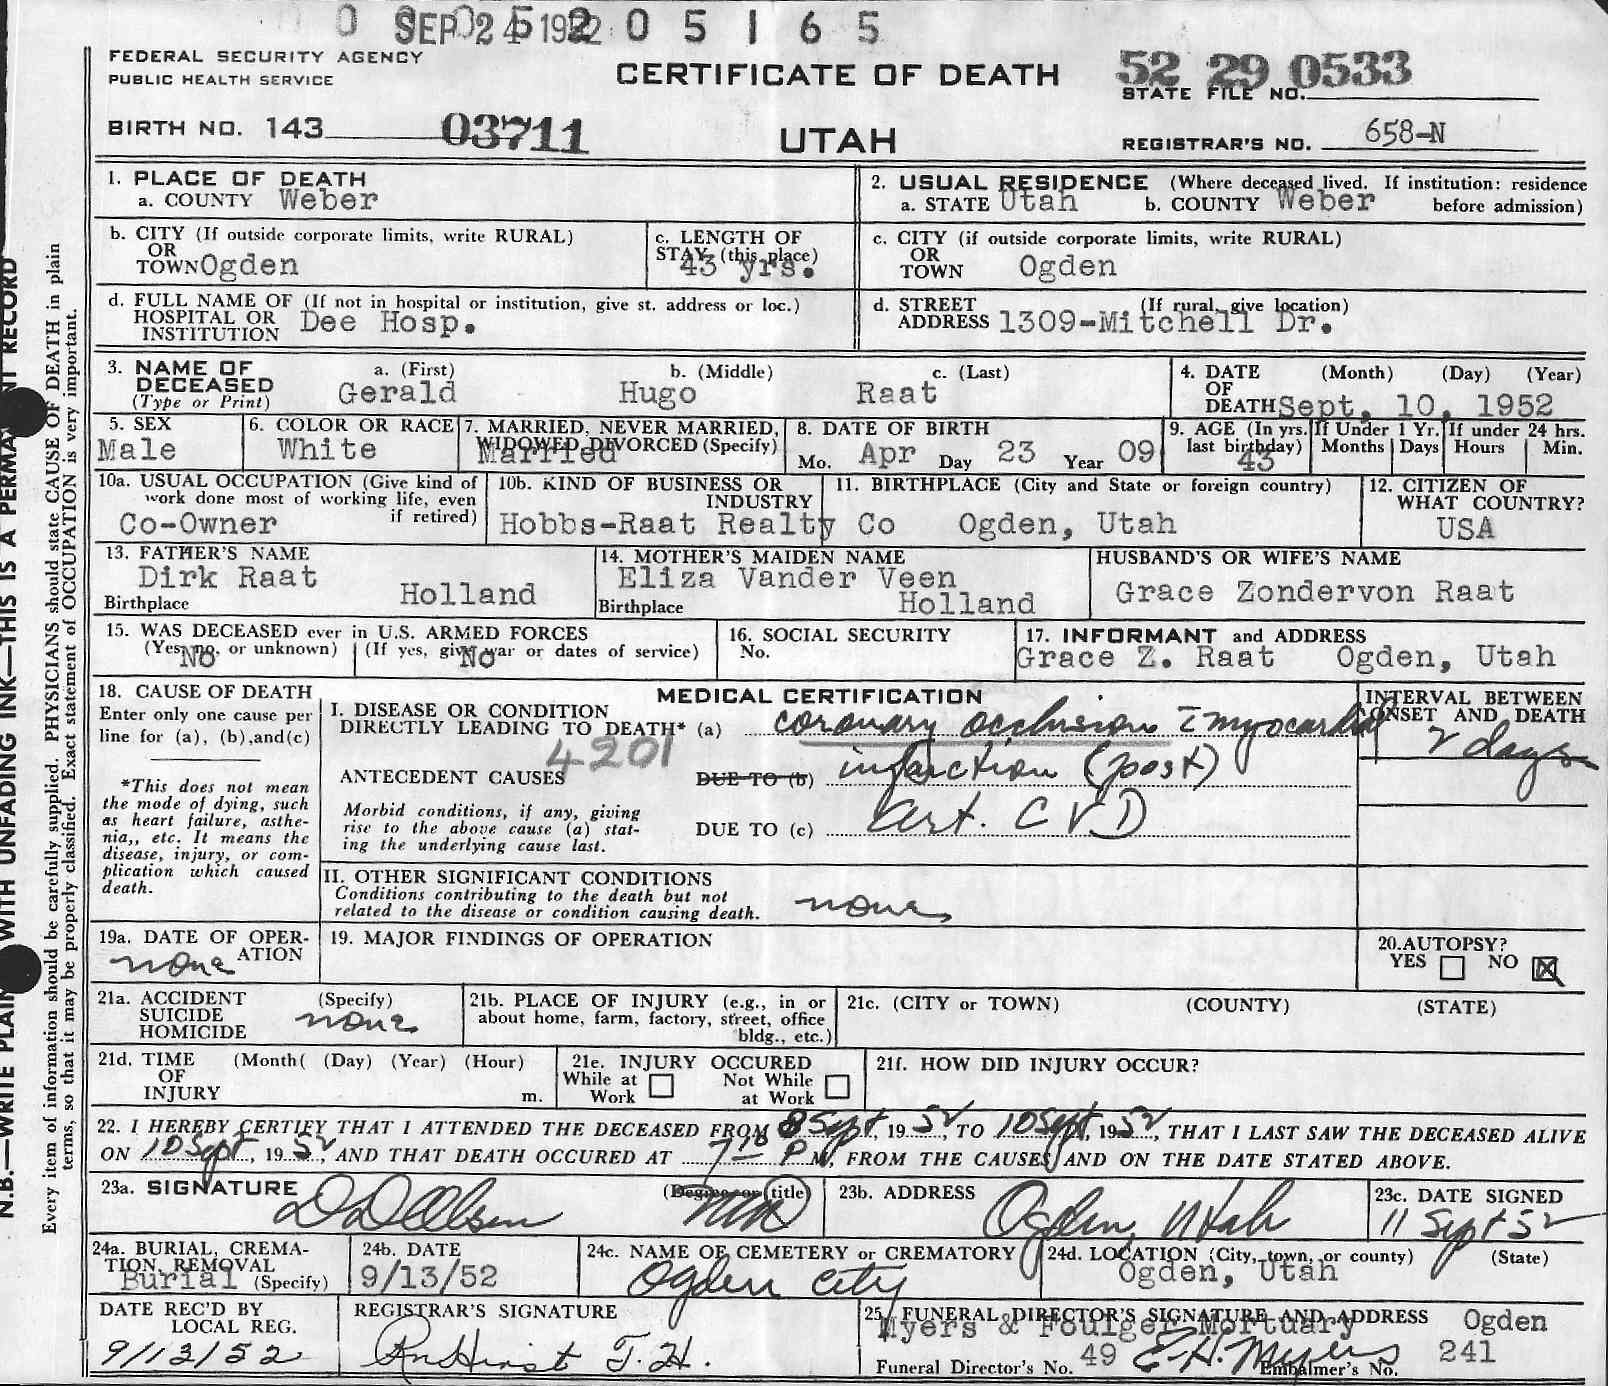 SEP 24 1952
0 5 2 0 5 1 6 5
FEDERAL SECURITY AGENCY
PUBLIC HEALTH SERVICE
CERTIFICATE OF DEATH
52 29 0533
STATE FILE NO.
BIRTH NO. 143 03711
UTAH
REGISTRAR'S NO. 658-N
1. PLACE OF DEATH
a. COUNTY Weber
2. USUAL RESIDENCE (Where deceased lived. If institution: residence
a. STATE Utah b. COUNTY Weber before admission)
b. CITY (If outside corporate limits, write RURAL)
OR
TOWN Ogden
c. LENGTH OF
STAY (this place)
43 yrs.
c. CITY (if outside corporate limits, write RURAL)
OR
TOWN Ogden
d. FULL NAME OF (If not in hospital or institution, give st. address or loc.)
HOSPITAL OR
INSTITUTION Dee Hosp.
d. STREET (If rural, give location)
ADDRESS 1309-Mitchell Dr.
3. NAME OF a. (First) b. (Middle) c. (Last)
DECEASED Gerald Hugo Raat
(Type or Print)
4. DATE (Month) (Day) (Year)
OF
DEATH Sept. 10, 1952
5. SEX
Male
6. COLOR OR RACE
White
7. MARRIED, NEVER MARRIED,
WIDOWED DIVORCED (Specify)
Married
8. DATE OF BIRTH
Mo. Apr Day 23 Year 09
9. AGE (In yrs.
last birthday)
43
If Under 1 Yr.
Months Days
If under 24 hrs.
Hours Min.
10a. USUAL OCCUPATION (Give kind of
work done most of working life, even
if retired)
Co-Owner
10b. KIND OF BUSINESS OR
INDUSTRY
Hobbs-Raat Realty Co
11. BIRTHPLACE (City and State or foreign country)
Ogden, Utah
12. CITIZEN OF
WHAT COUNTRY?
USA
13. FATHER'S NAME
Dirk Raat
Birthplace Holland
14. MOTHER'S MAIDEN NAME
Eliza Vander Veen
Birthplace Holland
HUSBAND'S OR WIFE'S NAME
Grace Zondervon Raat
15. WAS DECEASED ever in U.S. ARMED FORCES
(Yes, no, or unknown) (If yes, give war or dates of service)
No No
16. SOCIAL SECURITY
No.
17. INFORMANT and ADDRESS
Grace Z. Raat Ogden, Utah
18. CAUSE OF DEATH
Enter only one cause per
line for (a), (b),and(c)
*This does not mean
the mode of dying, such
as heart failure, asthe-
nia,, etc. It means the
disease, injury, or com-
plication which caused
death.
MEDICAL CERTIFICATION
I. DISEASE OR CONDITION
DIRECTLY LEADING TO DEATH* (a) coronary occlusion c̄ myocardial
4201
ANTECEDENT CAUSES DUE TO (b) infarction (post)
Morbid conditions, if any, giving
rise to the above cause (a) stat-
ing the underlying cause last.
DUE TO (c) art. C V D
INTERVAL BETWEEN
ONSET AND DEATH
2 days
II. OTHER SIGNIFICANT CONDITIONS
Conditions contributing to the death but not
related to the disease or condition causing death. none
19a. DATE OF OPER-
ATION
none
19. MAJOR FINDINGS OF OPERATION
20.AUTOPSY?
YES NO
21a. ACCIDENT (Specify)
SUICIDE
HOMICIDE none
21b. PLACE OF INJURY (e.g., in or
about home, farm, factory, street, office
bldg., etc.)
21c. (CITY or TOWN) (COUNTY) (STATE)
21d. TIME (Month( (Day) (Year) (Hour)
OF
INJURY m.
21e. INJURY OCCURED
While at Work Not While at Work
21f. HOW DID INJURY OCCUR?
22. I HEREBY CERTIFY THAT I ATTENDED THE DECEASED FROM 8 Sept, 19 52, TO 10 Sept, 19 52, THAT I LAST SAW THE DECEASED ALIVE
ON 10 Sept, 19 52, AND THAT DEATH OCCURED AT 7 10 P M, FROM THE CAUSES AND ON THE DATE STATED ABOVE.
23a. SIGNATURE (Degree or title)
D D Olsen MD
23b. ADDRESS
Ogden, Utah
23c. DATE SIGNED
11 Sept 52
24a. BURIAL, CREMA-
TION, REMOVAL
Burial (Specify)
24b. DATE
9/13/52
24c. NAME OF CEMETERY or CREMATORY
Ogden City
24d. LOCATION (City, town, or county) (State)
Ogden, Utah
DATE REC'D BY
LOCAL REG.
9/13/52
REGISTRAR'S SIGNATURE
25. FUNERAL DIRECTOR'S SIGNATURE AND ADDRESS Ogden
Myers & Foulger Mortuary
Funeral Director's No. 49 E.H. Myers Embalmer's No. 241
N.B.—WRITE PLAINLY WITH UNFADING INK—THIS IS A PERMANENT RECORD
Every item of information should be carefully supplied. PHYSICIANS should state CAUSE OF DEATH in plain
terms, so that it may be properly classified. Exact statement of OCCUPATION is very important.